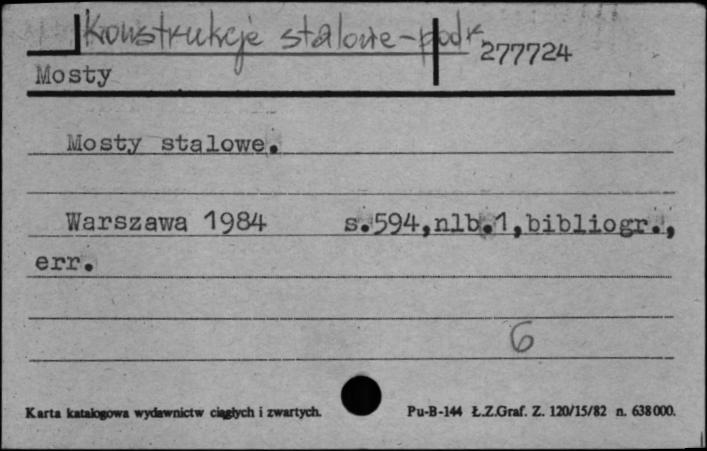 Konstrukcje stalowe-podr
277724
Mosty
Mosty stalowe.
Warszawa 1984 s.594,nlb.1,bibliogr.,
err.
6
Karta katalogowa wydawnictw ciągłych i zwartych. Pu-B-144 Ł.Z.Graf. Z. 120/15/82 n. 638000.